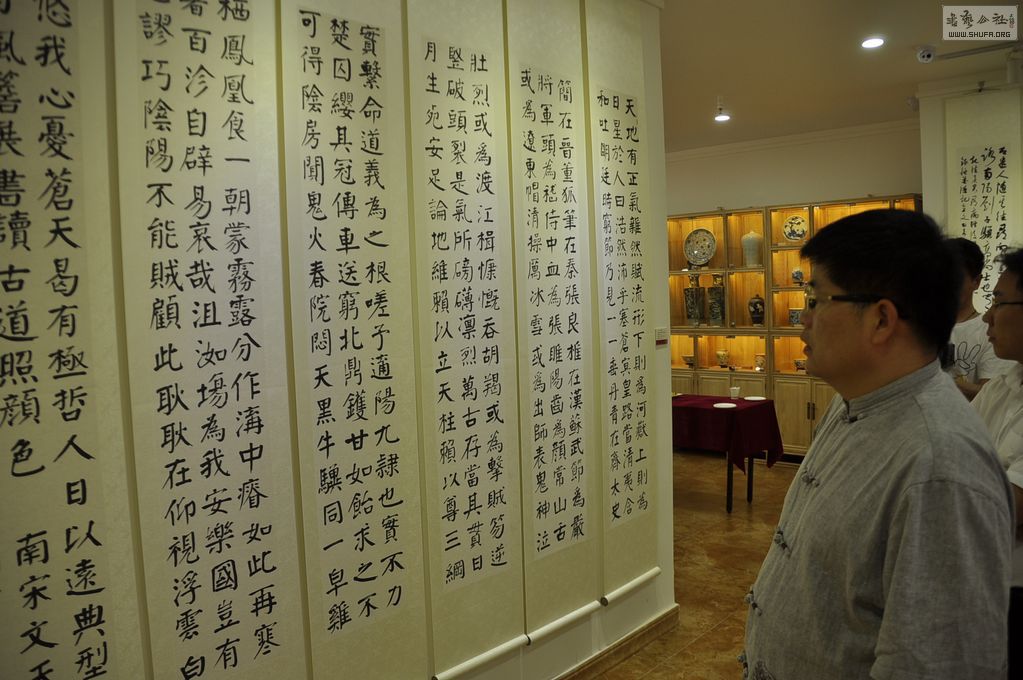 天地有正氣雜然賦流形下則為河嶽上則為
日星於人曰浩然沛乎塞蒼冥皇路當清夷含
和吐明廷時窮節乃見一一垂丹青在齊太史
簡在晉董狐筆在秦張良椎在漢蘇武節為嚴
將軍頭為嵇侍中血為張睢陽齒為顏常山舌
或為遼東帽清操厲冰雪或為出師表鬼神泣
壯烈或為渡江楫慷慨吞胡羯或為擊賊笏逆
豎破頭裂是氣所磅礡凜烈萬古存當其貫日
月生死安足論地維賴以立天柱賴以尊三綱
實繫命道義為之根嗟予遘陽九隸也實不力
楚囚纓其冠傳車送窮北鼎鑊甘如飴求之不
可得陰房聞鬼火春院悶天黑牛驥同一皁雞
棲鳳凰食一朝蒙霧露分作溝中瘠如此再寒
暑百沴自辟易哀哉沮洳場為我安樂國豈有
謬巧陰陽不能賊顧此耿耿在仰視浮雲白
悠我心憂蒼天曷有極哲人日以遠典型
風簷展書讀古道照顏色 南宋文天
書藝公社
WWW.SHUFA.ORG